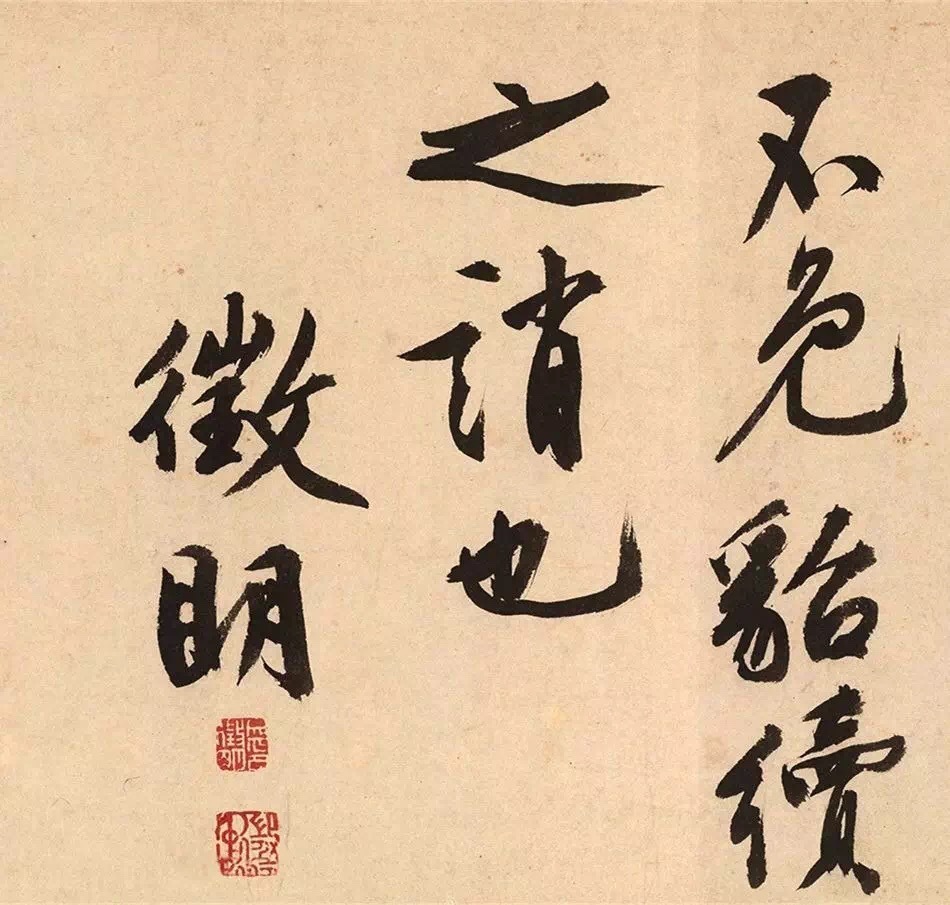 不免貂續
之誚也
徵明